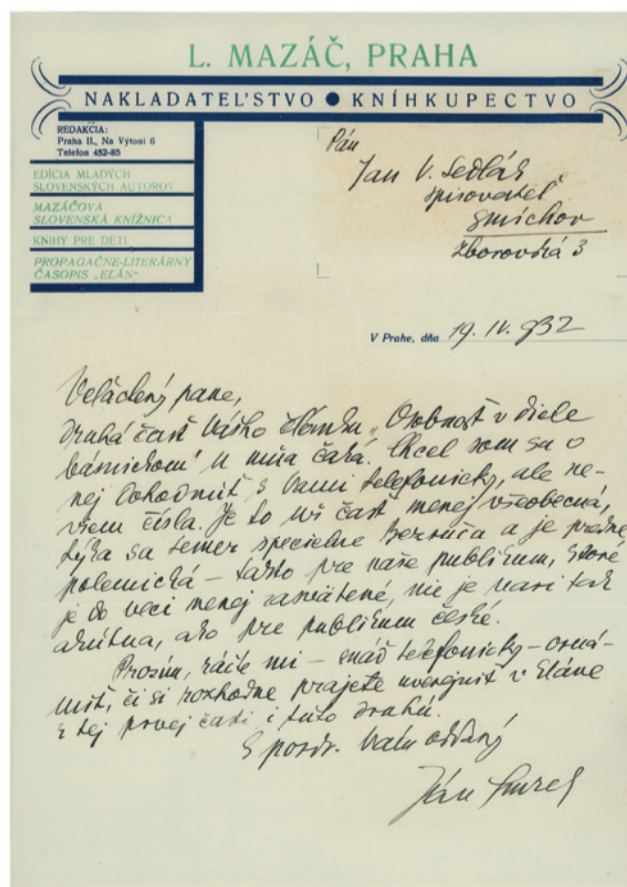 L. MAZÁČ, PRAHA
NAKLADATEĽSTVO ● KNÍHKUPECTVO
REDAKCIA:
Praha II., Na Výtoni 6
Telefon 452-85
EDÍCIA MLADÝCH
SLOVENSKÝCH AUTOROV
MAZÁČOVA
SLOVENSKÁ KNIŽNICA
KNIHY PRE DETI
PROPAGAČNE-LITERÁRNY
ČASOPIS „ELÁN"
Pán
Jan V. Sedlák
spisovateľ
Smíchov
Zborovská 3
V Prahe, dňa 19. IV. 932
Veľactený pane,
druhá časť Vášho článku „Osobnosť v diele
básnickom" u mňa čaká. Chcel som sa o
nej dohodnúť s Vami telefonicky, ale ne-
viem čísla. Je to už časť menej všeobecná,
týka sa temer specielne Bezruča a je
polemická – takto pre naše publikum, ktoré
je do veci menej zasvätené, nie je vari tak
akútna, ako pre publikum české.
Prosím, ráčte mi – snáď telefonicky – ozná-
miť, či si rozhodne prajete uverejniť v Eláne
z tej prvej časti i túto druhú.
S pozdr. Vám oddaný
Ján Smrek